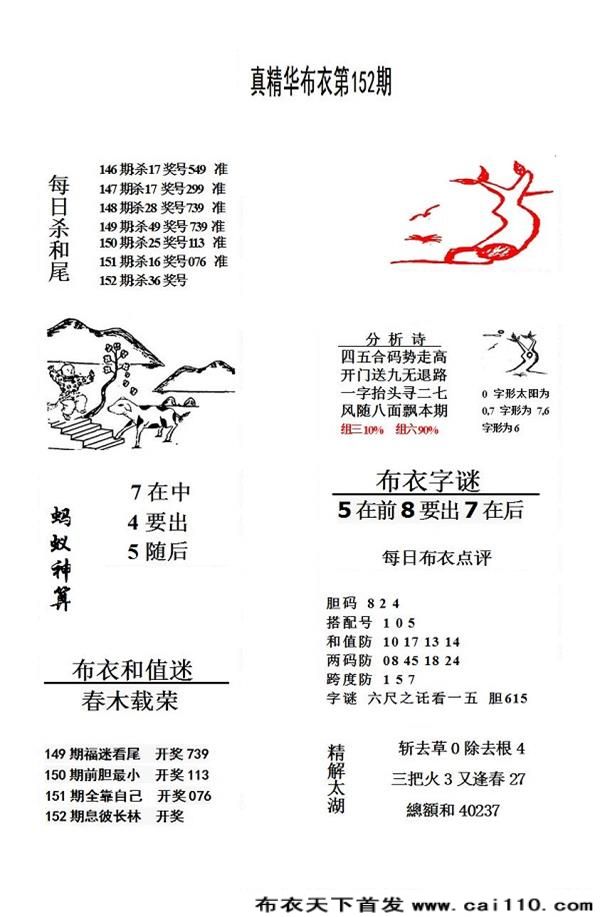 真精华布衣第152期
每日杀和尾
146 期:杀17 奖号549 准
147 期:杀17 奖号 299 准
148 期:杀28 奖号739 准
149 期:杀49 奖号 739 准
150 期:杀25 奖号113 准
151 期:杀16 奖号076 准
152 期:杀36 奖号
分析诗
四五合码势走高
开门送九无退路
一字抬头寻二七
风随八面飘本期
组三10% 组六90%
0 字形太阳为
0,7 字形为 7,6
字形为6
蚂蚁神算
7 在中
4 要出
5 随后
布衣字谜
5在前8要出7在后
每日布衣点评
胆码 8 2 4
搭配号 1 0 5
和值防 10 17 13 14
两码防 08 45 18 24
跨度防 1 5 7
字谜 六尺之讬看一五 胆615
布衣和值迷
春木载荣
149 期福迷看尾 开奖 739
150 期前胆最小 开奖 113
151 期全靠自己 开奖 076
152 期息彼长林 开奖
精解太湖
斩去草 0 除去根 4
三把火 3 又逢春 27
總額和 40237
布衣天下首发 www.cai110.com